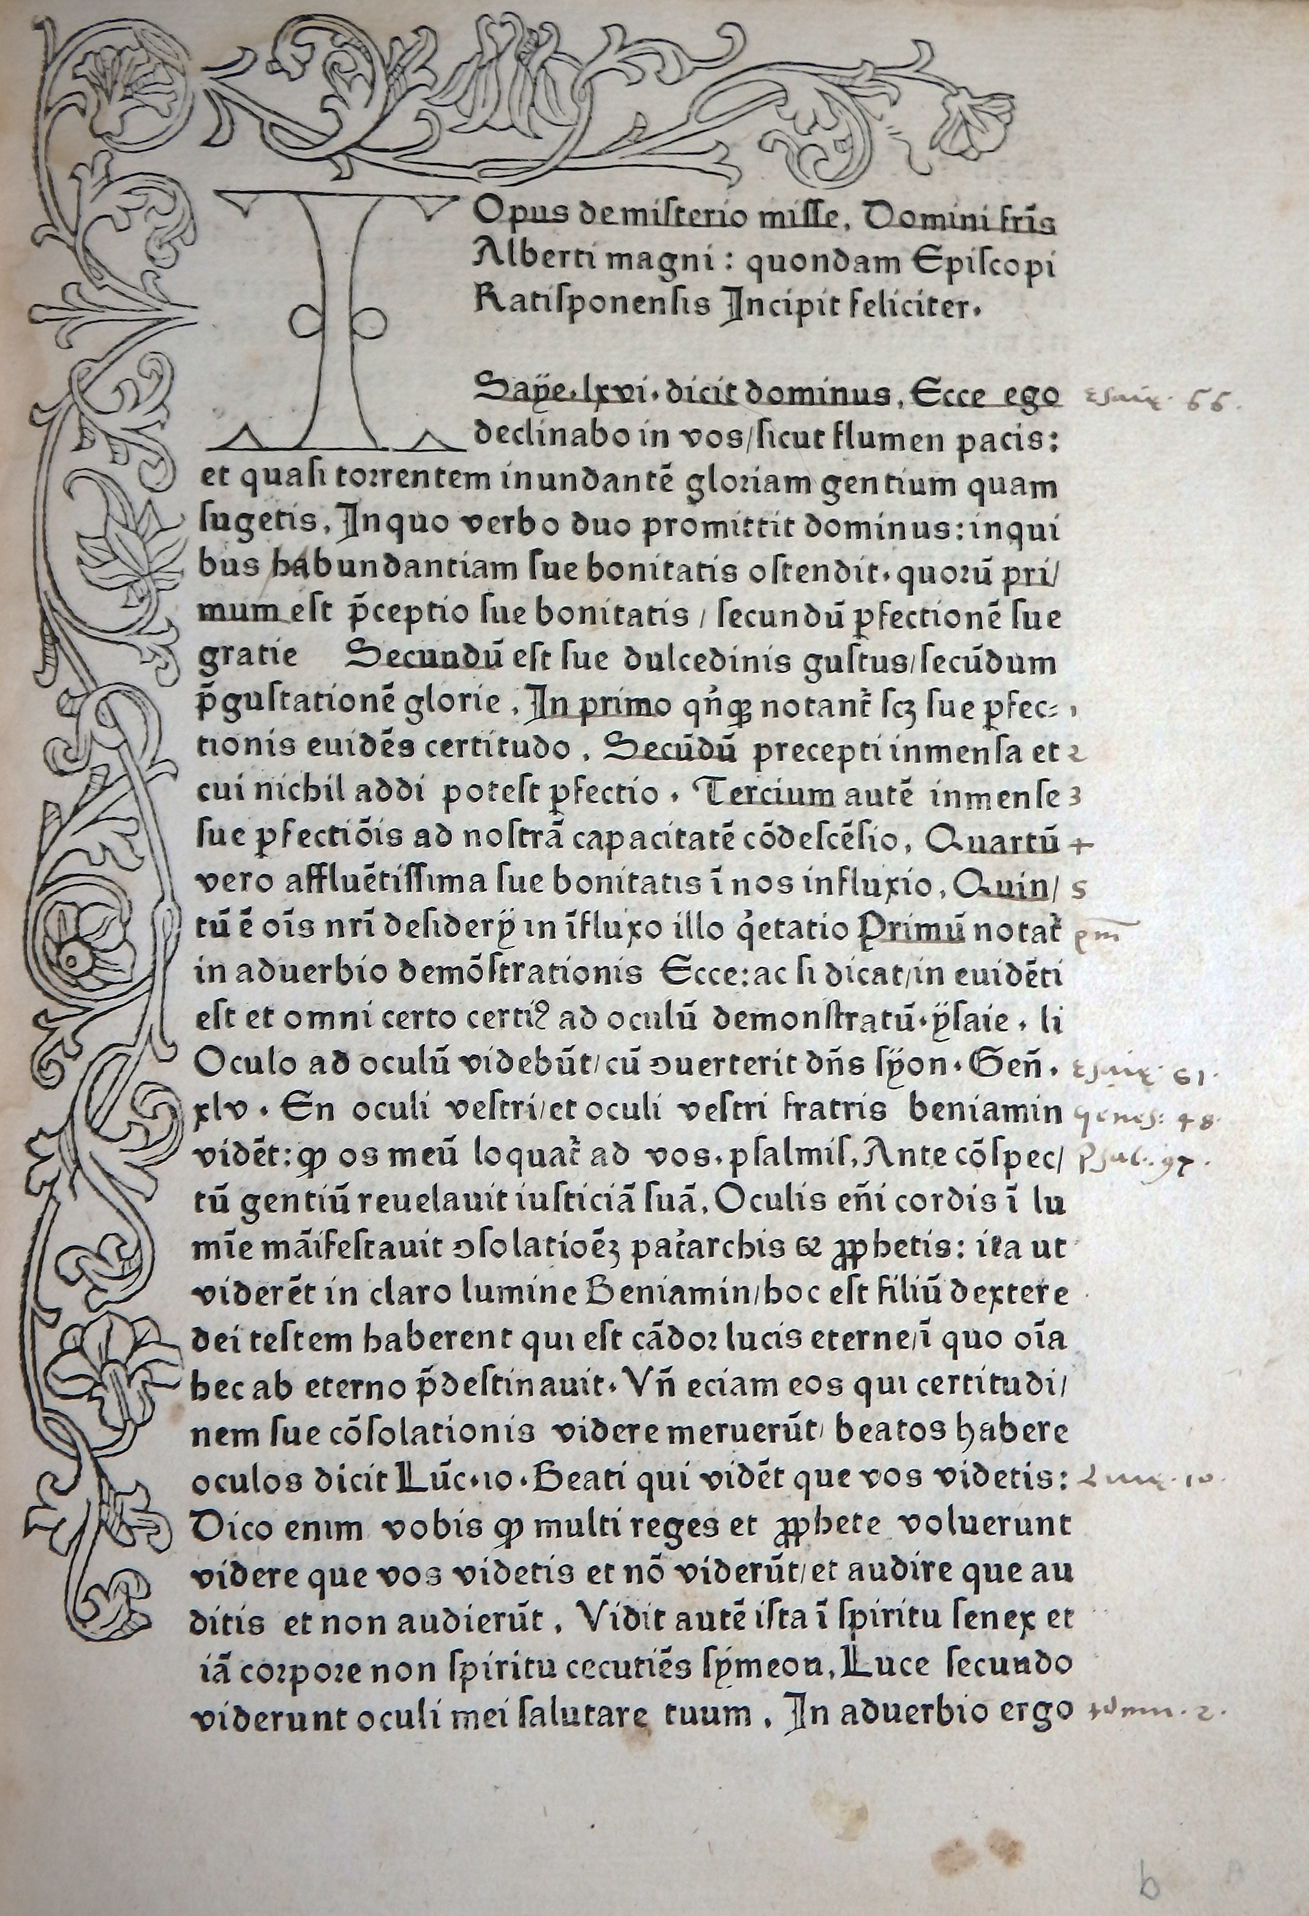 I
Opus de misterio misse, Domini fr̄is
Alberti magni : quondam Episcopi
Ratisponensis Incipit feliciter.
Saÿe.lxvi.dicit dominus, Ecce ego esaię. 66.
declinabo in vos/sicut flumen pacis:
et quasi torrentem inundantē gloriam gentium quam
sugetis, In quo verbo duo promittit dominus:in qui
bus habundantiam sue bonitatis ostendit.quorū pri/
mum est p̄ceptio sue bonitatis / secundū ꝑfectionē sue
gratie Secundū est sue dulcedinis gustus/secūdum
p̄gustationē glorie , In primo qn̄qꝫ notant᷑ scꝫ sue ꝑfec= 1
tionis euidēs certitudo , Secūdū precepti inmensa et 2
cui nichil addi potest ꝑfectio . Tercium autē inmense 3
sue ꝑfectiōis ad nostrā capacitatē cōdescēsio, Quartū 4
vero affluētissima sue bonitatis ī nos influxio, Quin/ 5
tū ē oīs nrī desiderÿ in īfluxo illo q̇etatio Primū notat᷑ pm̄
in aduerbio demōstrationis Ecce:ac si dicat/in euidēti
est et omni certo certiꝰ ad oculū demonstratū.ÿsaie . li
Oculo ad oculū videbūt/cū ꝯuerterit dn̄s sÿon.Gen̄. esaię 61.
xlv . En oculi vestri/et oculi vestri fratris beniamin genes: 48.
vidēt:ꝙ os meū loquat᷑ ad vos.psalmis,Ante cōspec/ psal. 97.
tū gentiū reuelauit iusticiā suā,Oculis en̄i cordis ī lu
mīe māifestauit ꝯsolatioēꝫ pat᷑archis & ꝓphetis: ita ut
viderēt in claro lumine Beniamin/hoc est filiū dextere
dei testem haberent qui est cādor lucis eterne/ī quo oīa
hec ab eterno p̄destinauit. Vn̄ eciam eos qui certitudi/
nem sue cōsolationis videre meruerūt/ beatos habere
oculos dicit Lūc.10.Beati qui vidēt que vos videtis: Lucę.10.
Dico enim vobis ꝙ multi reges et ꝓphete voluerunt
videre que vos videtis et nō viderūt/et audire que au
ditis et non audierūt , Vidit autē ista ī spiritu senex et
iā corpore non spiritu cecutiēs sÿmeon,Luce secundo
viderunt oculi mei salutare tuum , In aduerbio ergo idem.2.
b